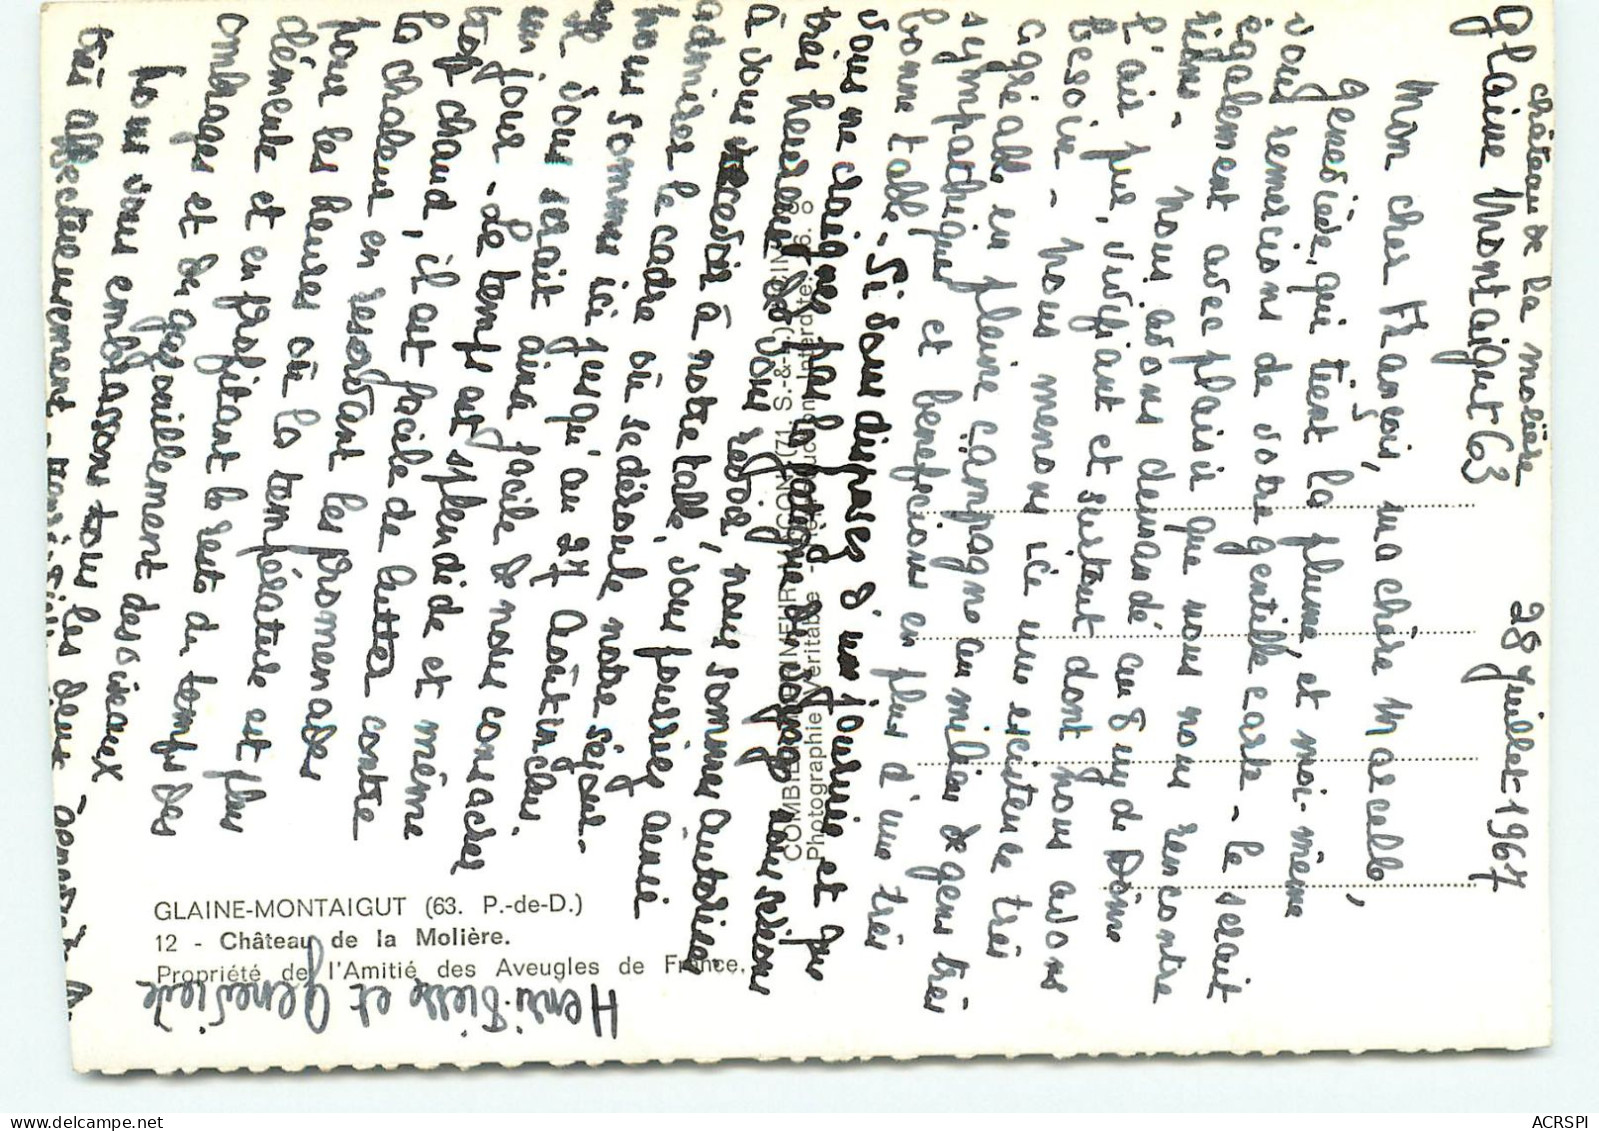 château de la molière
Glaine Montaigut 63
28 Juillet 1967
Mon cher François, ma chère Marcelle,
Geneviève, qui tient la plume, et moi-même
vous remercions de votre gentille carte - le serait
également avec plaisir que nous nous rencontre
rions - Nous avons demandé au Puy de Dôme
l'air pur, vivifiant et surtout dont nous avons
besoin - nous menons ici une existence très
agréable en pleine campagne au milieu de gens très
sympathiques et bénéficions en plus d'une très
bonne table. Si vous disposez d'une journée et que
vous ne craignez pas la fatigue du voyage nous serions
très heureux de vous
à vous recevoir à notre table, nous sommes autorisés
admirer le cadre où se déroule notre séjour.
nous sommes ici jusqu'au 27 Août inclus.
il vous serait ainsi facile de nous consacrer
un jour - Le temps est splendide et même
trop chaud, il est facile de lutter contre
la chaleur en réservant les promenades
pour les heures où la température est plus
clémente et en profitant le reste du temps des
ombrages et du gazouillement des oiseaux
nous vous embrassons tous les deux
très affectueusement
Henri-Pierre et Geneviève
GLAINE-MONTAIGUT (63. P.-de-D.)
12 - Château de la Molière.
Propriété de l'Amitié des Aveugles de France.
COMBIER IMPR MACON (71 S.-&-L.)
Photographie véritable - Reproduction Interdite
ACRSPI